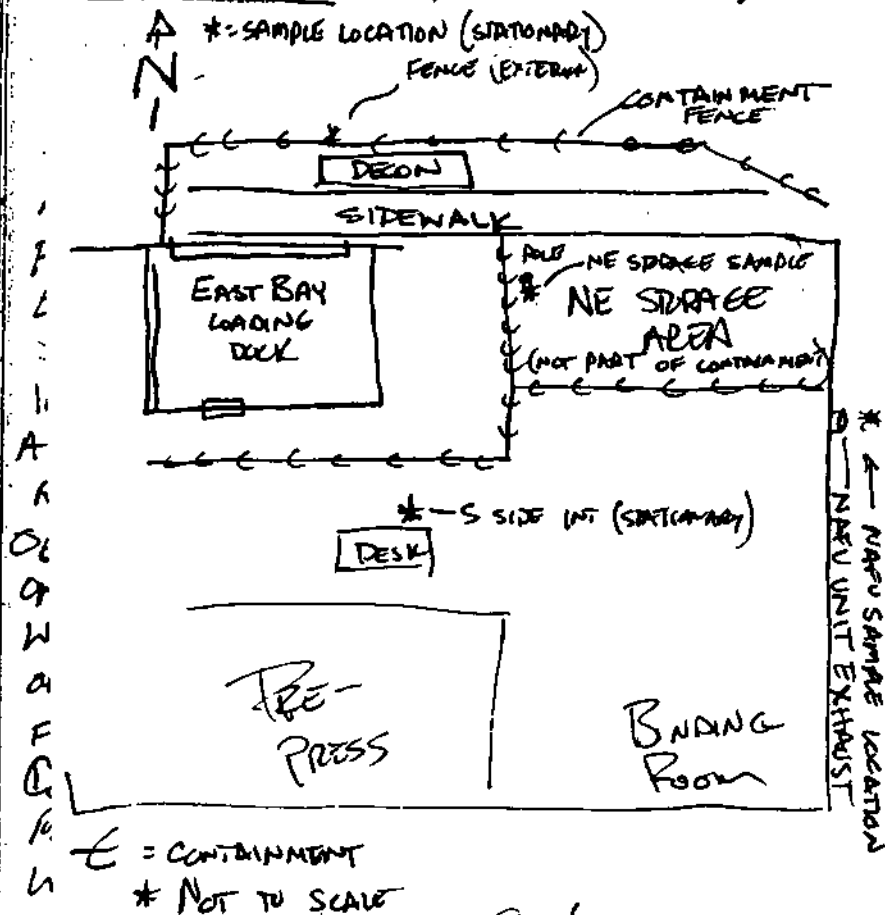 N
*=SAMPLE LOCATION (STATIONARY)
FENCE (EXTERIOR)
CONTAINMENT
FENCE
DECON
SIDEWALK
EAST BAY
LOADING
DOCK
POLE
NE STORAGE SAMPLE
NE STORAGE
AREA
(NOT PART OF CONTAINMENT)
* — S SIDE INT (STATIONARY)
DESK
* ← NAFU SAMPLE LOCATION
NAFU UNIT EXHAUST
PRE-
PRESS
BINDING
ROOM
= CONTAINMENT
* NOT TO SCALE